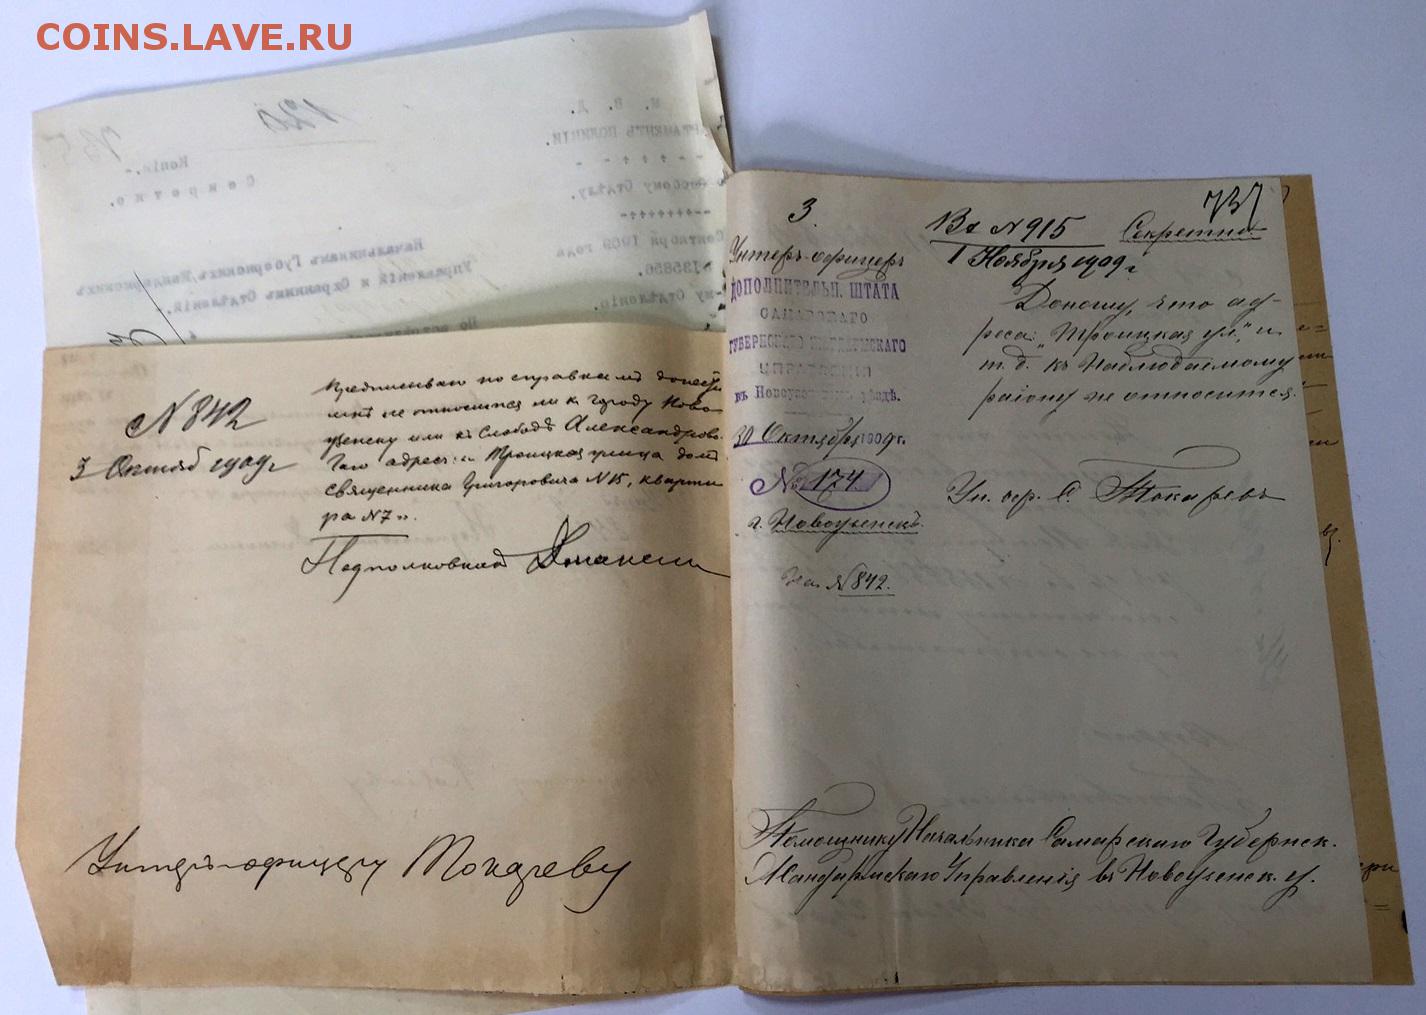 COINS.LAVE.RU
120
735
М. В. Д.
ДЕПАРТАМЕНТЪ ПОЛИЦІИ.
Копія.
Секретно.
По Особому Отдѣлу.
Сентября 1909 года
№135856.
Отдѣленію.
Начальникамъ Губернскихъ Жандармскихъ
Управленій и Охраннымъ Отдѣленій.
№ 842
3 Октяб 1909 г
Предписываю по справкамъ донести
мнѣ не относится ли к городу Ново
узенску или къ Слободѣ Александрово
Гаю адресъ: „Троицкая улица домъ
священника Григоровича №15, кварти
ра №7".
Подполковник
Унтеръ-офицеру Токареву
3.
737
Вх №915
Секретно
1 Ноября 1909 г
Унтеръ-офицеръ
ДОПОЛНИТЕЛЬН. ШТАТА
САМАРСКАГО
ГУБЕРНСКАГО ЖАНДАРМСКАГО
УПРАВЛЕНІЯ
въ Новоузенскомъ уѣздѣ.
30 Октября 1909 г.
№ 174
г. Новоузенскъ.
На №842.
Доношу, что ад-
ресъ: „Троицкая ул", и
т. д. къ Наблюдаемому
району не относится.
Ун. оф. С. Токаревъ
Помощнику Начальника Самарскаго Губернск.
Жандармскаго Управленія въ Новоузенск. у.